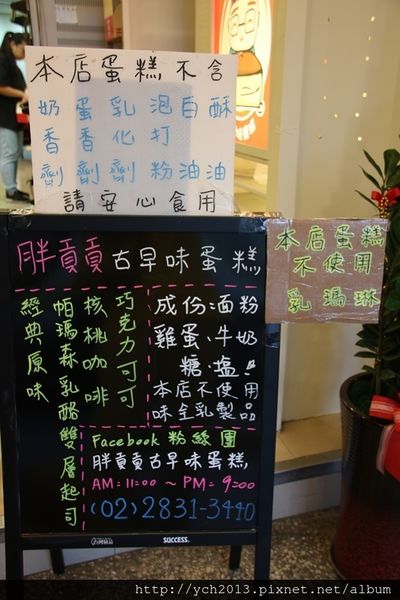 本店蛋糕不含
奶香劑
蛋香劑
乳化劑
泡打粉
白油
酥油
請安心食用
本店蛋糕
不使用
乳瑪琳
胖貢貢古早味蛋糕
巧克力可可
核桃咖啡
帕瑪森乳酪雙層起司
經典原味
成份:麵粉
雞蛋、牛奶
糖、鹽。
本店不使用
味全乳製品
Facebook 粉絲團
胖貢貢古早味蛋糕
AM:11:00 ~ PM:9:00
(02)2831-3440
SUCCESS.
http://ych2013.pixnet.net/album